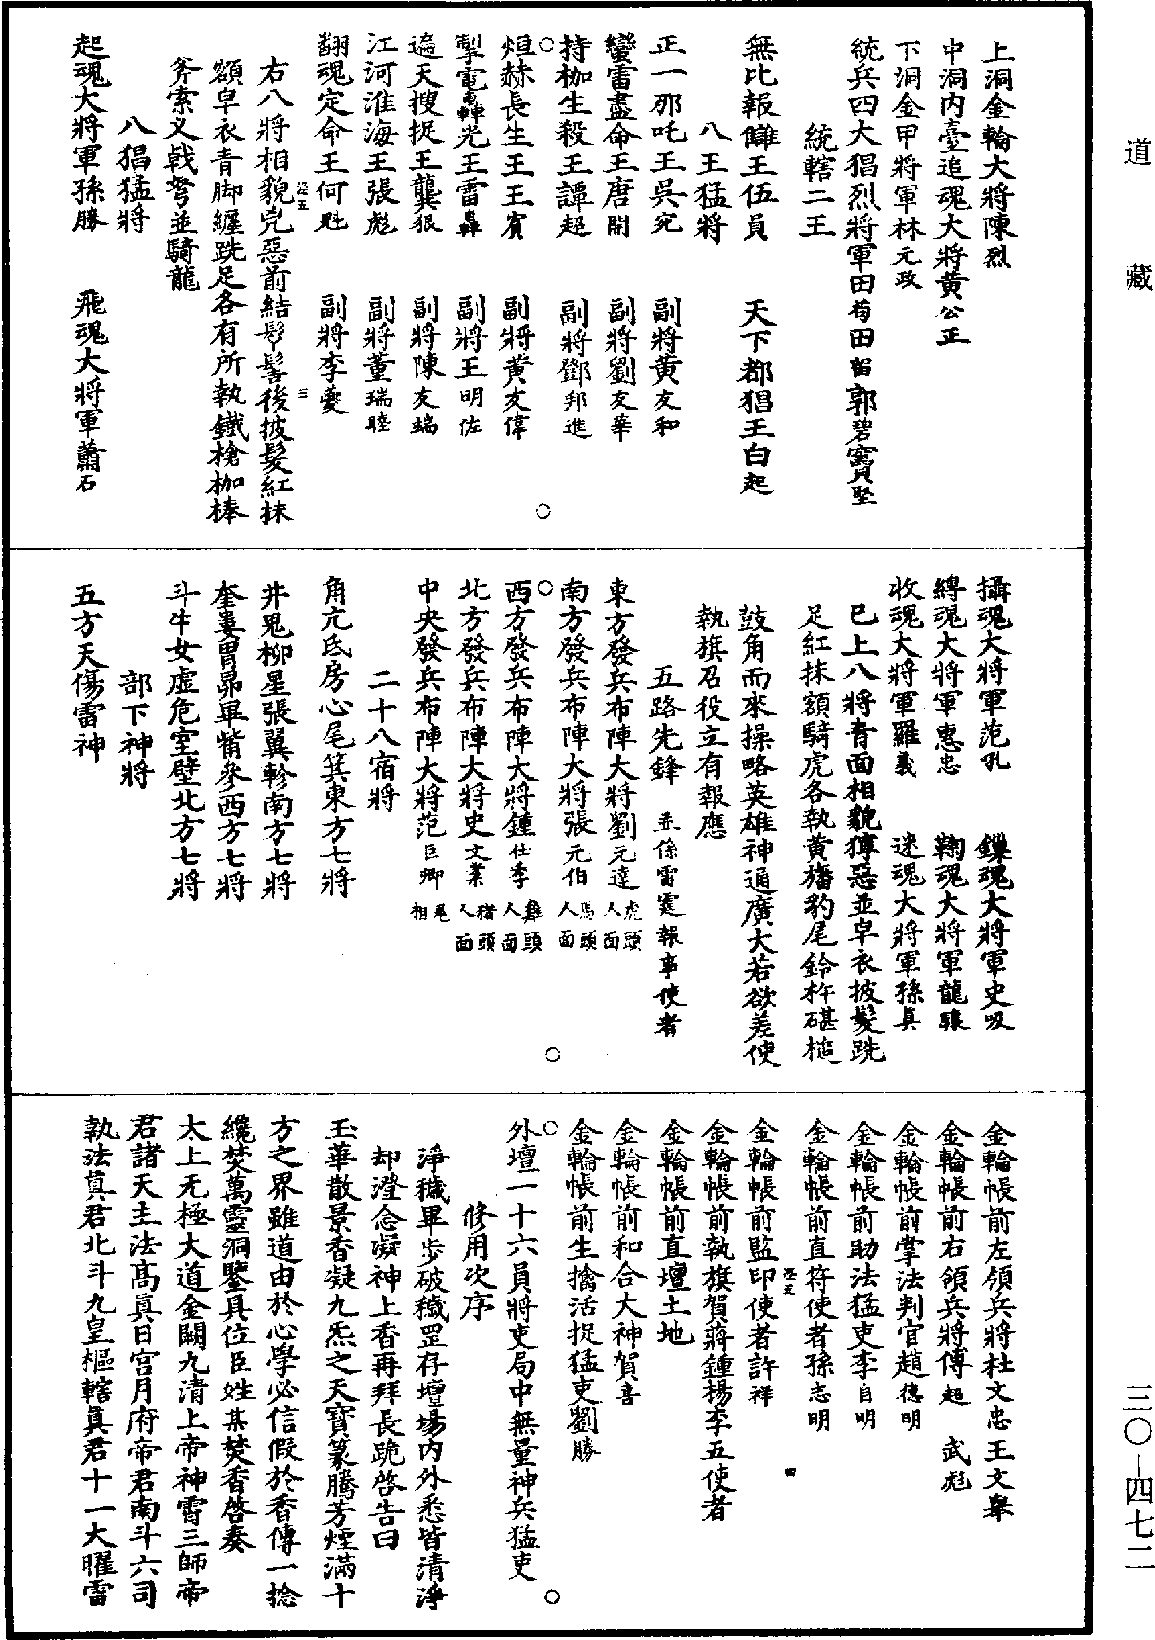 道藏
上洞金輪大將陳烈
中洞內臺追魂大將黃公正
下洞金甲將軍林元政
統兵四大猖烈將軍田苟田留郭碧竇堅
統轄二王
無比報讎王伍員　天下都猖王白起
八王猛將
正一那吒王吳宛　副將黃友和
蠻雷盡命王唐開　副將劉友華
持枷生殺王譚超　副將鄧邦進
烜赫長生王王賓　副將黃友偉
掣電轟光王雷轟　副將王明佐
遶天搜捉王龔狠　副將陳友端
江河淮海王張彪　副將董瑞睦
翻魂定命王何魁　副將李夔
右八將相貌兇惡前結髽髻後披髮紅抹
額皁衣青脚纏跣足各有所執鐵槍枷棒
斧索义戟弩並騎龍
八猖猛將
起魂大將軍孫勝　飛魂大將軍蕭石
攝魂大將軍范孔　鏁魂大將軍史吸
縛魂大將軍惠忠　鞫魂大將軍龍驤
收魂大將軍羅義　迷魂大將軍孫真
已上八將青面相貌獰惡並皁衣披髮跣
足紅抹額騎虎各執黃旛豹尾鈴杵碪槌
鼓角而來操略英雄神通廣大若欲差使
執旗召役立有報應
五路先鋒　並係雷霆報事使者
東方發兵布陣大將劉元達虎頭人面
南方發兵布陣大將張元伯馬頭人面
西方發兵布陣大將鍾仕季雞頭人面
北方發兵布陣大將史文業猪頭人面
中央發兵布陣大將范巨卿鬼相
二十八宿將
角亢氐房心尾箕東方七將
井鬼柳星張翼軫南方七將
奎婁胃昴畢觜參西方七將
斗牛女虛危室壁北方七將
部下神將
五方天傷雷神
金輪帳前左領兵將杜文忠王文舉
金輪帳前右領兵將傅超　武彪
金輪帳前掌法判官趙德明
金輪帳前助法猛吏李自明
金輪帳前直符使者孫志明
金輪帳前監印使者許祥
金輪帳前執旗賀蔣鍾楊李五使者
金輪帳前直壇土地
金輪帳前和合大神賀喜
金輪帳前生擒活捉猛吏劉勝
外壇一十六員將吏局中無量神兵猛吏
修用次序
淨穢畢步破穢罡存壇場內外悉皆清淨
却澄念凝神上香再拜長跪啓告曰
玉華散景香凝九炁之天寶篆騰芳煙滿十
方之界雖道由於心學必信假於香傳一捻
纔焚萬靈洞鑒具位臣姓某焚香啓奏
太上无極大道金闕九清上帝神霄三師帝
君諸天主法高真日宮月府帝君南斗六司
執法真君北斗九皇樞轄真君十一大曜雷
三〇—四七二